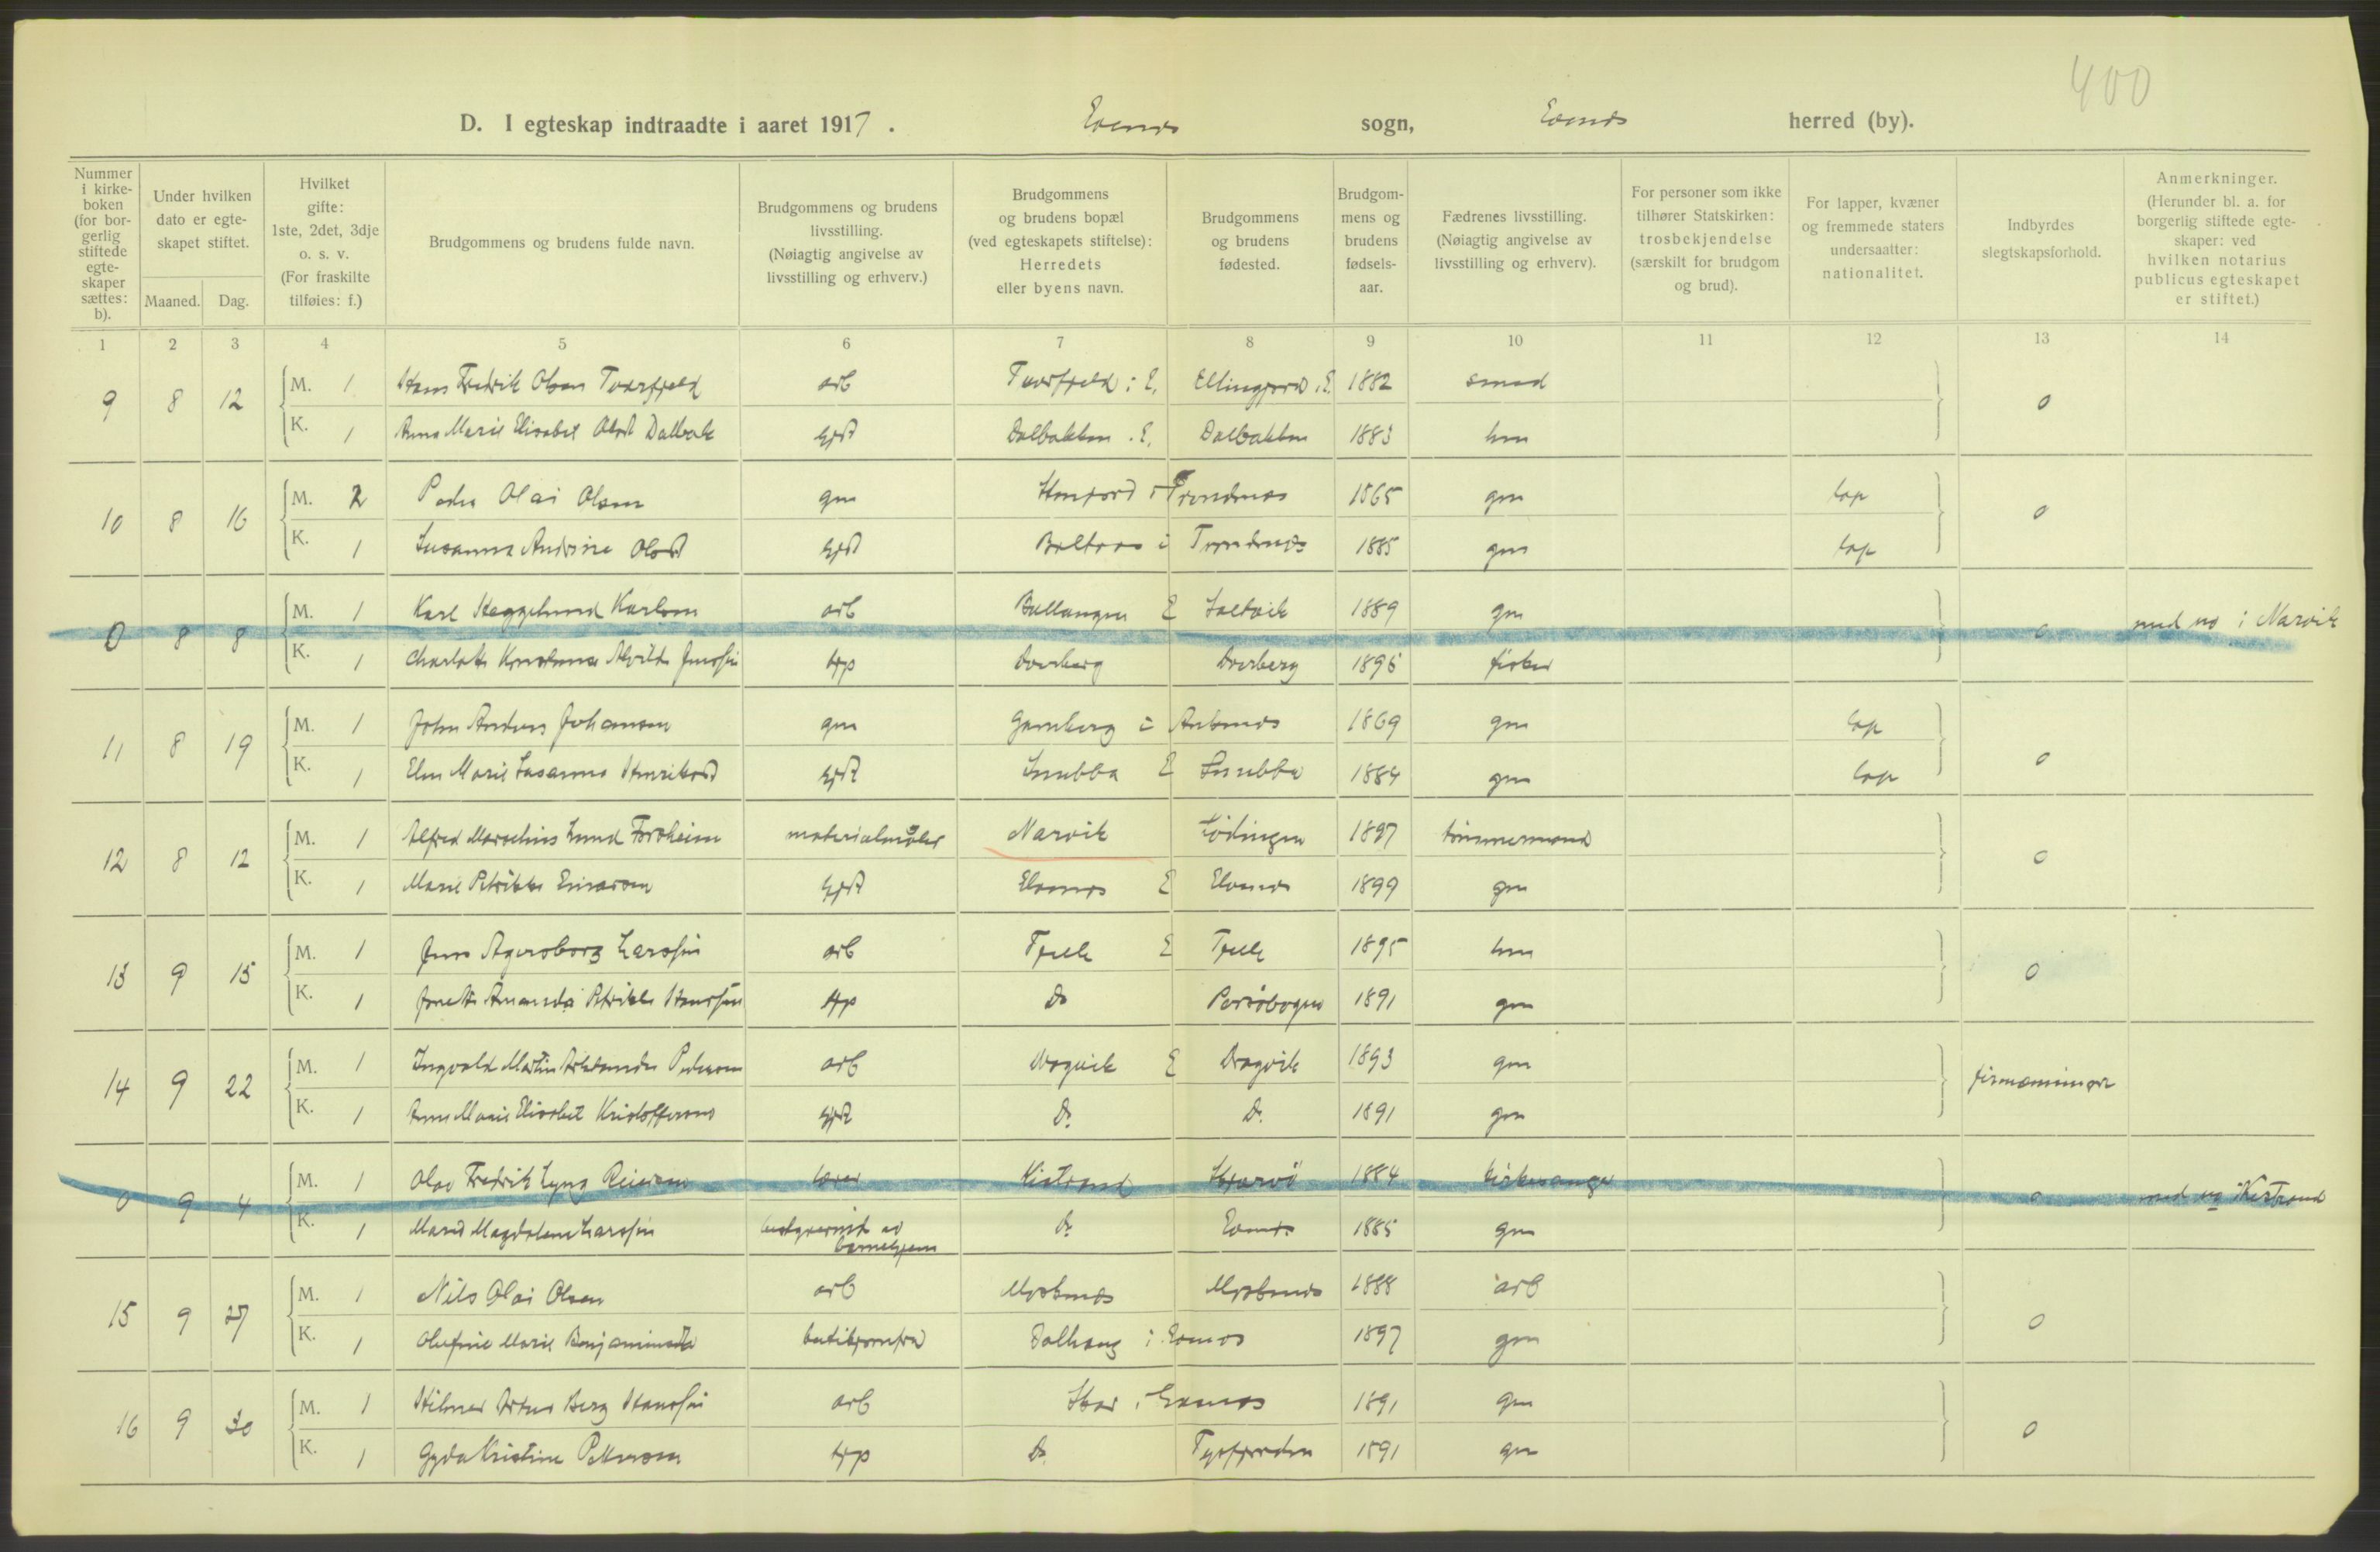 400
D. I egteskap indtraadte i aaret 1917. Evenes sogn, Evenes herred (by).
Nummer i kirkeboken (for borgerlig stiftede egteskaper sættes: b).
Under hvilken dato er egteskapet stiftet.
Maaned. Dag.
Hvilket gifte: 1ste, 2det, 3dje o. s. v. (For fraskilte tilføies: f.)
Brudgommens og brudens fulde navn.
Brudgommens og brudens livsstilling. (Nøiagtig angivelse av livsstilling og erhverv.)
Brudgommens og brudens bopæl (ved egteskapets stiftelse): Herredets eller byens navn.
Brudgommens og brudens fødested.
Brudgommens og brudens fødselsaar.
Fædrenes livsstilling. (Nøiagtig angivelse av livsstilling og erhverv).
For personer som ikke tilhører Statskirken: trosbekjendelse (særskilt for brudgom og brud).
For lapper, kvæner og fremmede staters undersaatter: nationalitet.
Indbyrdes slegtskapsforhold.
Anmerkninger. (Herunder bl. a. for borgerlig stiftede egteskaper: ved hvilken notarius publicus egteskapet er stiftet.)
1 2 3 4 5 6 7 8 9 10 11 12 13 14
9 8 12 M. 1 Hans Fredrik Olsen Tverfjeld arb Tverfjeld i E. 1882 smed 0
K. 1 Anna Marie Elisabet Olsd Dalbak hjd Dalbakken . E. Dalbakken 1883 hm
10 8 16 M. 2 Peder Olai Olsen gm i Trondenes 1865 gm lap 0
K. 1 Susanna Andrine Olsd hjd i Trondenes 1885 gm lap
0 8 8 M. 1 Karl Heggelund Karlsen arb Ballangen E 1889 gm 0 med no i Narvik
K. 1 Charlotte Alvilda Jensen tjp Dverberg Dverberg 1896 fisker
11 8 19 M. 1 John Anders Johansen gm Grønberg i Ankenes 1869 gm lap 0
K. 1 Elen Marie Susanna Henriksd hjd Snubba E Snubba 1884 gm lap
12 8 12 M. 1 Alfred Lund Forsheim Narvik Lødingen 1897 tømmermand 0
K. 1 Marie Petrikke Einarsen hjd Evenes E Evenes 1899 gm
13 9 15 M. 1 Jens Agersborg Larssen arb E 1895 hm 0
K. 1 Amanda Petrikke Hanssen tjp Do 1891 gm
14 9 22 M. 1 Ingvald Martin Pedersen arb Dragvik E Dragvik 1893 gm firmenninger
K. 1 Anna Marie Elisabet Kristoffersen hjd Do. Do. 1891 gm
0 9 4 M. 1 Olav Fredrik Lyng Reiersen lærer Kistrand Skjærvø 1884 kirkesanger 0 med no i Kistrand
K. 1 Marie Magdalene Larssen bestyrerinde av barnehjem Do. Evenes 1885 gm
15 9 27 M. 1 Nils Olai Olsen arb 1888 arb 0
K. 1 Olufine Marie Benjaminsen butikjomfru Dalhaug i Evenes 1897 gm
16 9 30 M. 1 Hilmer Artur Berg Hanssen arb i Evenes 1891 gm 0
K. 1 Gyda Kristine Pettersen tjp Do. Tysfjorden 1891 gm